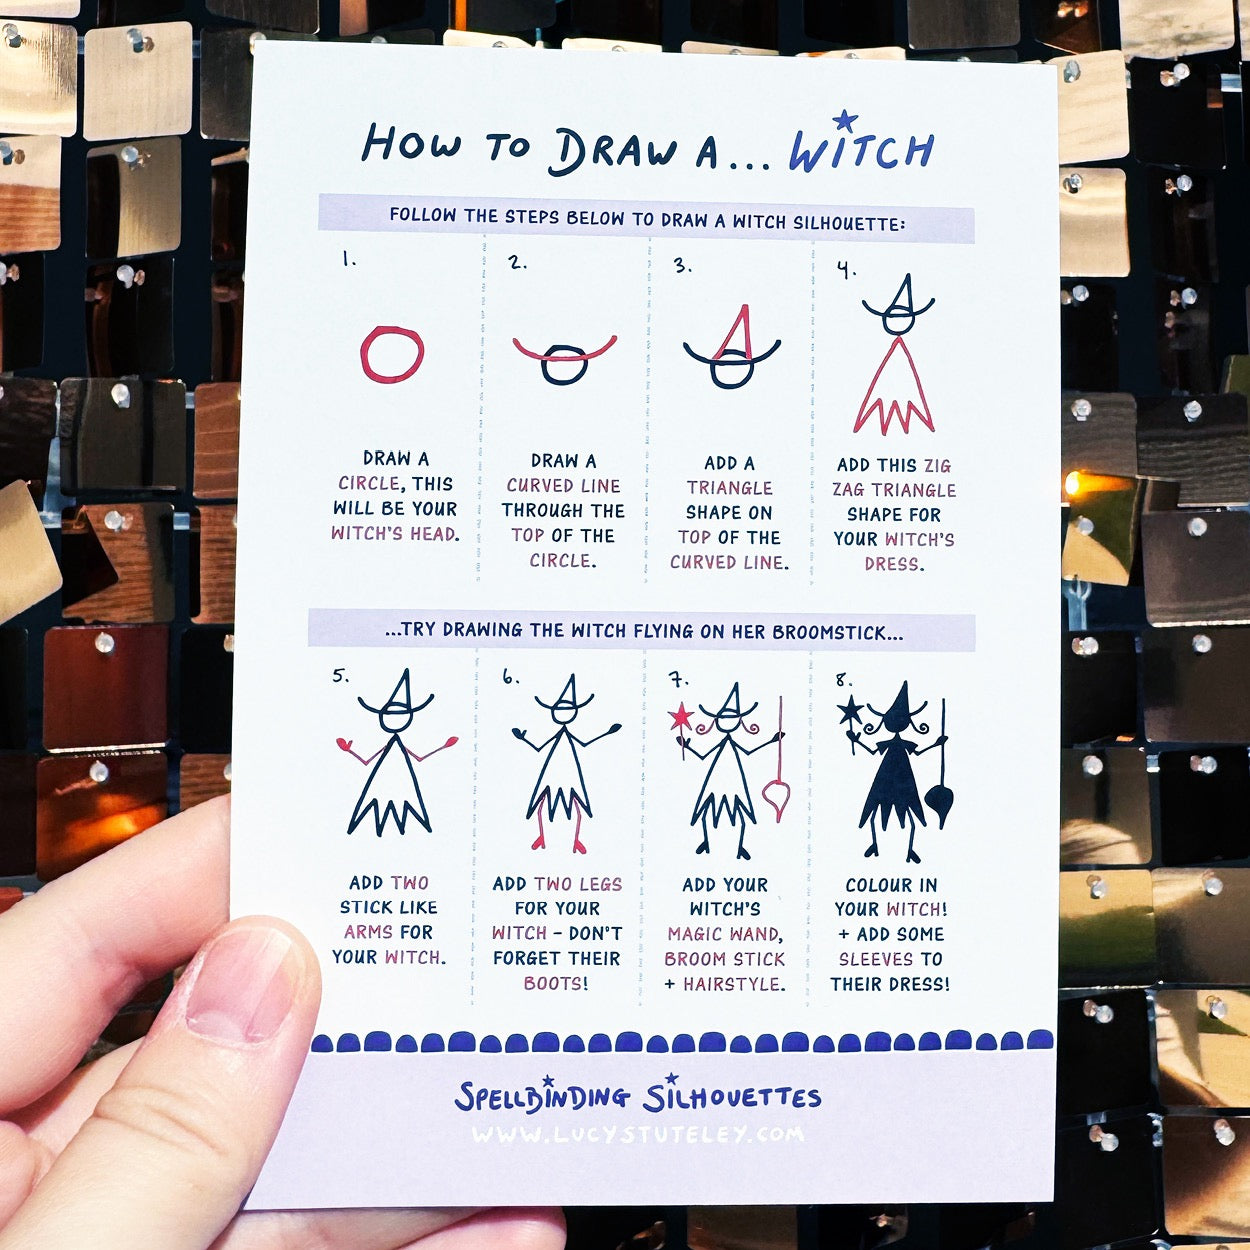 HOW TO DRAW A... WITCH
FOLLOW THE STEPS BELOW TO DRAW A WITCH SILHOUETTE:
1.
DRAW A
CIRCLE, THIS
WILL BE YOUR
WITCH'S HEAD.
2.
DRAW A
CURVED LINE
THROUGH THE
TOP OF THE
CIRCLE.
3.
ADD A
TRIANGLE
SHAPE ON
TOP OF THE
CURVED LINE.
4.
ADD THIS ZIG
ZAG TRIANGLE
SHAPE FOR
YOUR WITCH'S
DRESS.
...TRY DRAWING THE WITCH FLYING ON HER BROOMSTICK...
5.
ADD TWO
STICK LIKE
ARMS FOR
YOUR WITCH.
6.
ADD TWO LEGS
FOR YOUR
WITCH - DON'T
FORGET THEIR
BOOTS!
7.
ADD YOUR
WITCH'S
MAGIC WAND,
BROOM STICK
+ HAIRSTYLE.
8.
COLOUR IN
YOUR WITCH!
+ ADD SOME
SLEEVES TO
THEIR DRESS!
SPELLBINDING SILHOUETTES
WWW.LUCYSTUTELEY.COM